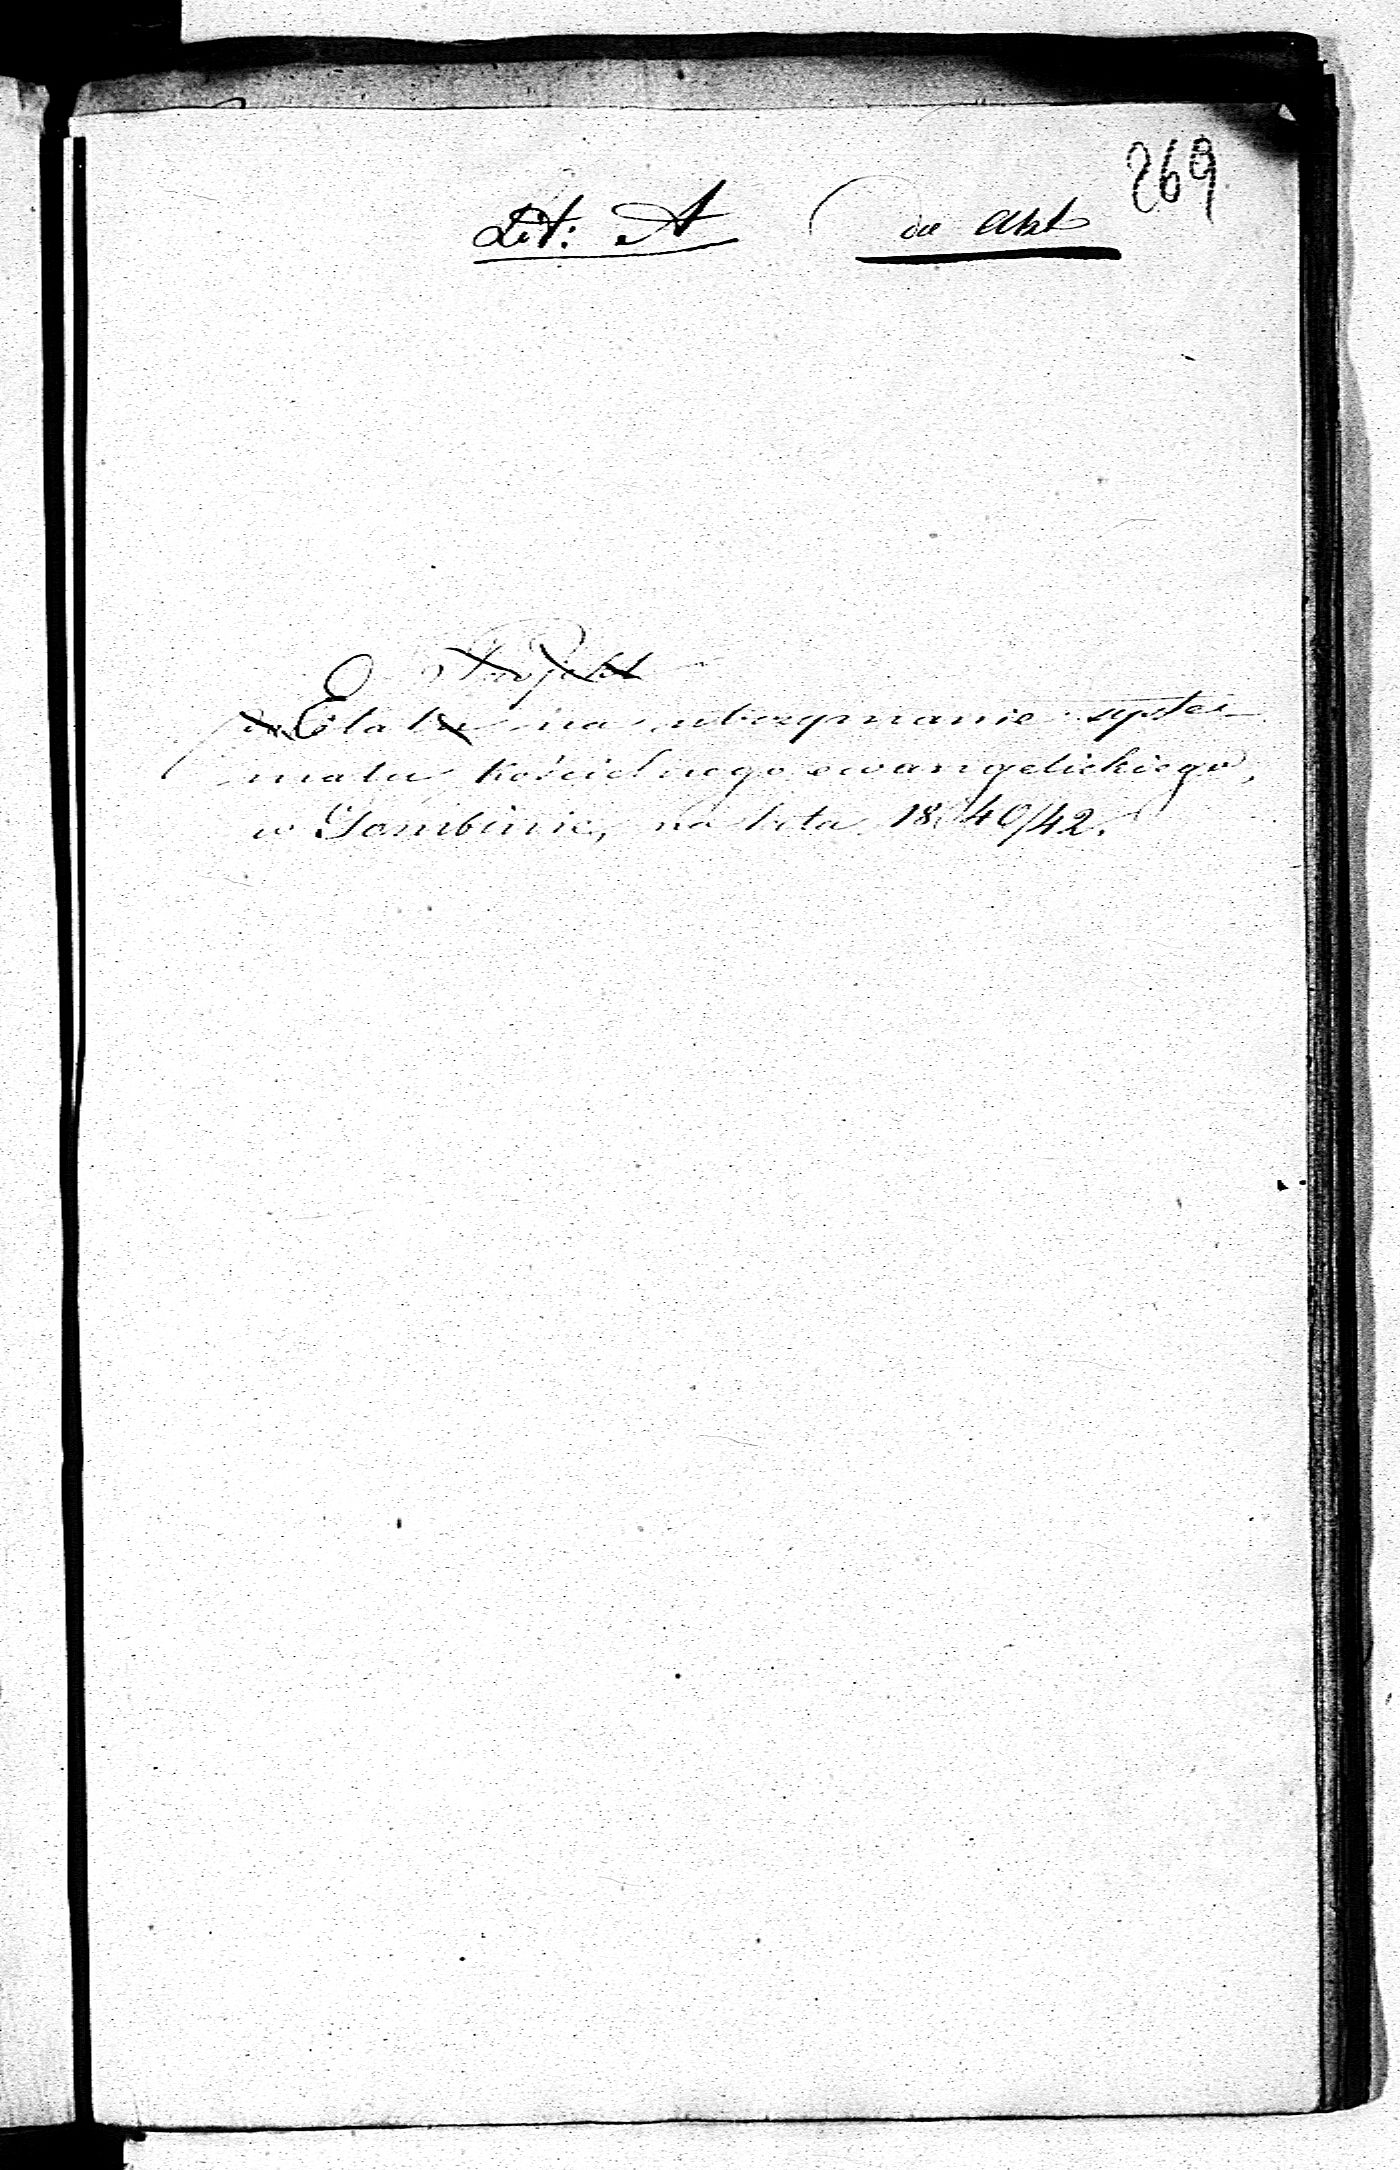 269
Lit: A do Akt
Projekt
do Etatu na utrzymanie syste-
matu kościelnego ewangelickiego,
w Gombinie, na lata 1840/42.